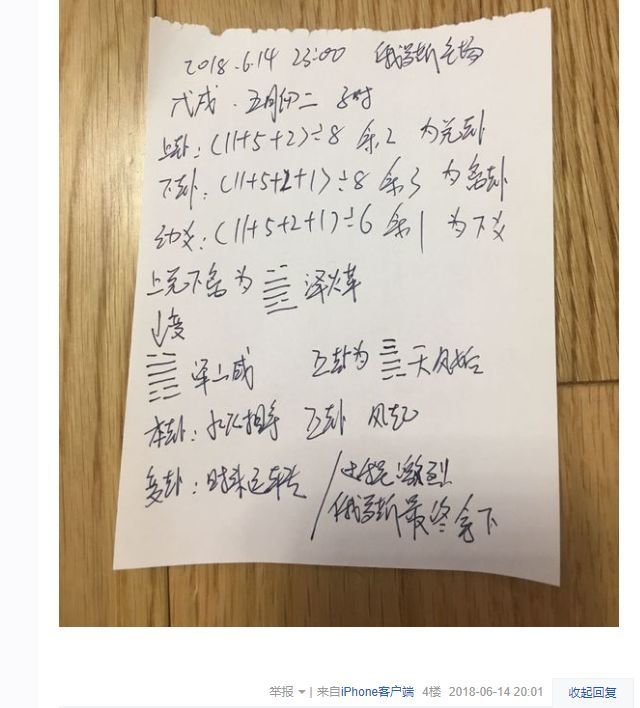 2018.6.14 23:00 俄罗斯主场
戊戌.五月初二 子时
上卦:(11+5+2)÷8 余2 为兑卦
下卦:(11+5+2+1)÷8 余3 为离卦
动爻:(11+5+2+1)÷6 余1 为下爻
上兑下离为 泽火革
↓变
泽山咸 互卦为 天风姤
本卦:水火相 互卦 风起
变卦:时来运转
比分 激烈
俄罗斯最终拿下
举报 | 来自iPhone客户端 4楼 2018-06-14 20:01 收起回复